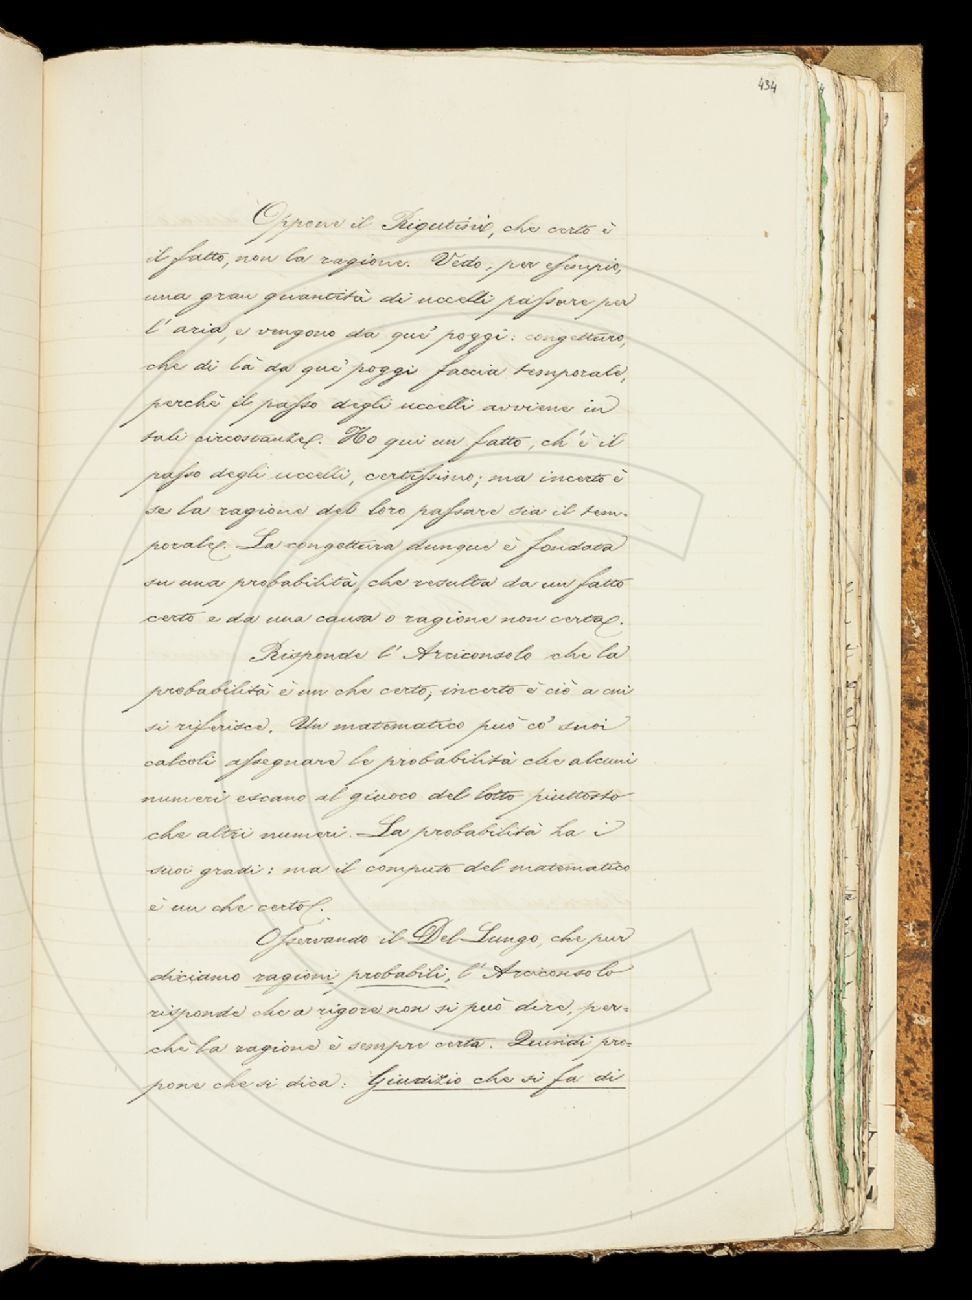 434
Oppone il Rigutini, che certo è
il fatto, non la ragione. Vedo, per esempio,
una gran quantità di uccelli passare per
l'aria, e vengono da que' poggi: congetturo,
che di là da que' poggi faccia temporale,
perchè il passo degli uccelli avviene in
tali circostanze. Ho qui un fatto, ch'è il
passo degli uccelli, certissimo; ma incerto è
se la ragione del loro passare sia il tem-
porale. La congettura dunque è fondata
su una probabilità, che resulta da un fatto
certo e da una causa o ragione non certa.
Risponde l'Arciconsolo che la
probabilità è un che certo; incerto è ciò a cui
si riferisce. Un matematico può co' suoi
calcoli assegnare le probabilità che alcuni
numeri escano al giuoco del lotto piuttosto
che altri numeri. La probabilità ha i
suoi gradi: ma il computo del matematico
è un che certo.
Osservando il Del-Lungo, che pur
diciamo ragioni probabili, l'Arciconsolo
risponde che a rigore non si può dire, per-
chè la ragione è sempre certa. Quindi pro-
pone che si dica: Giudizio che si fa di